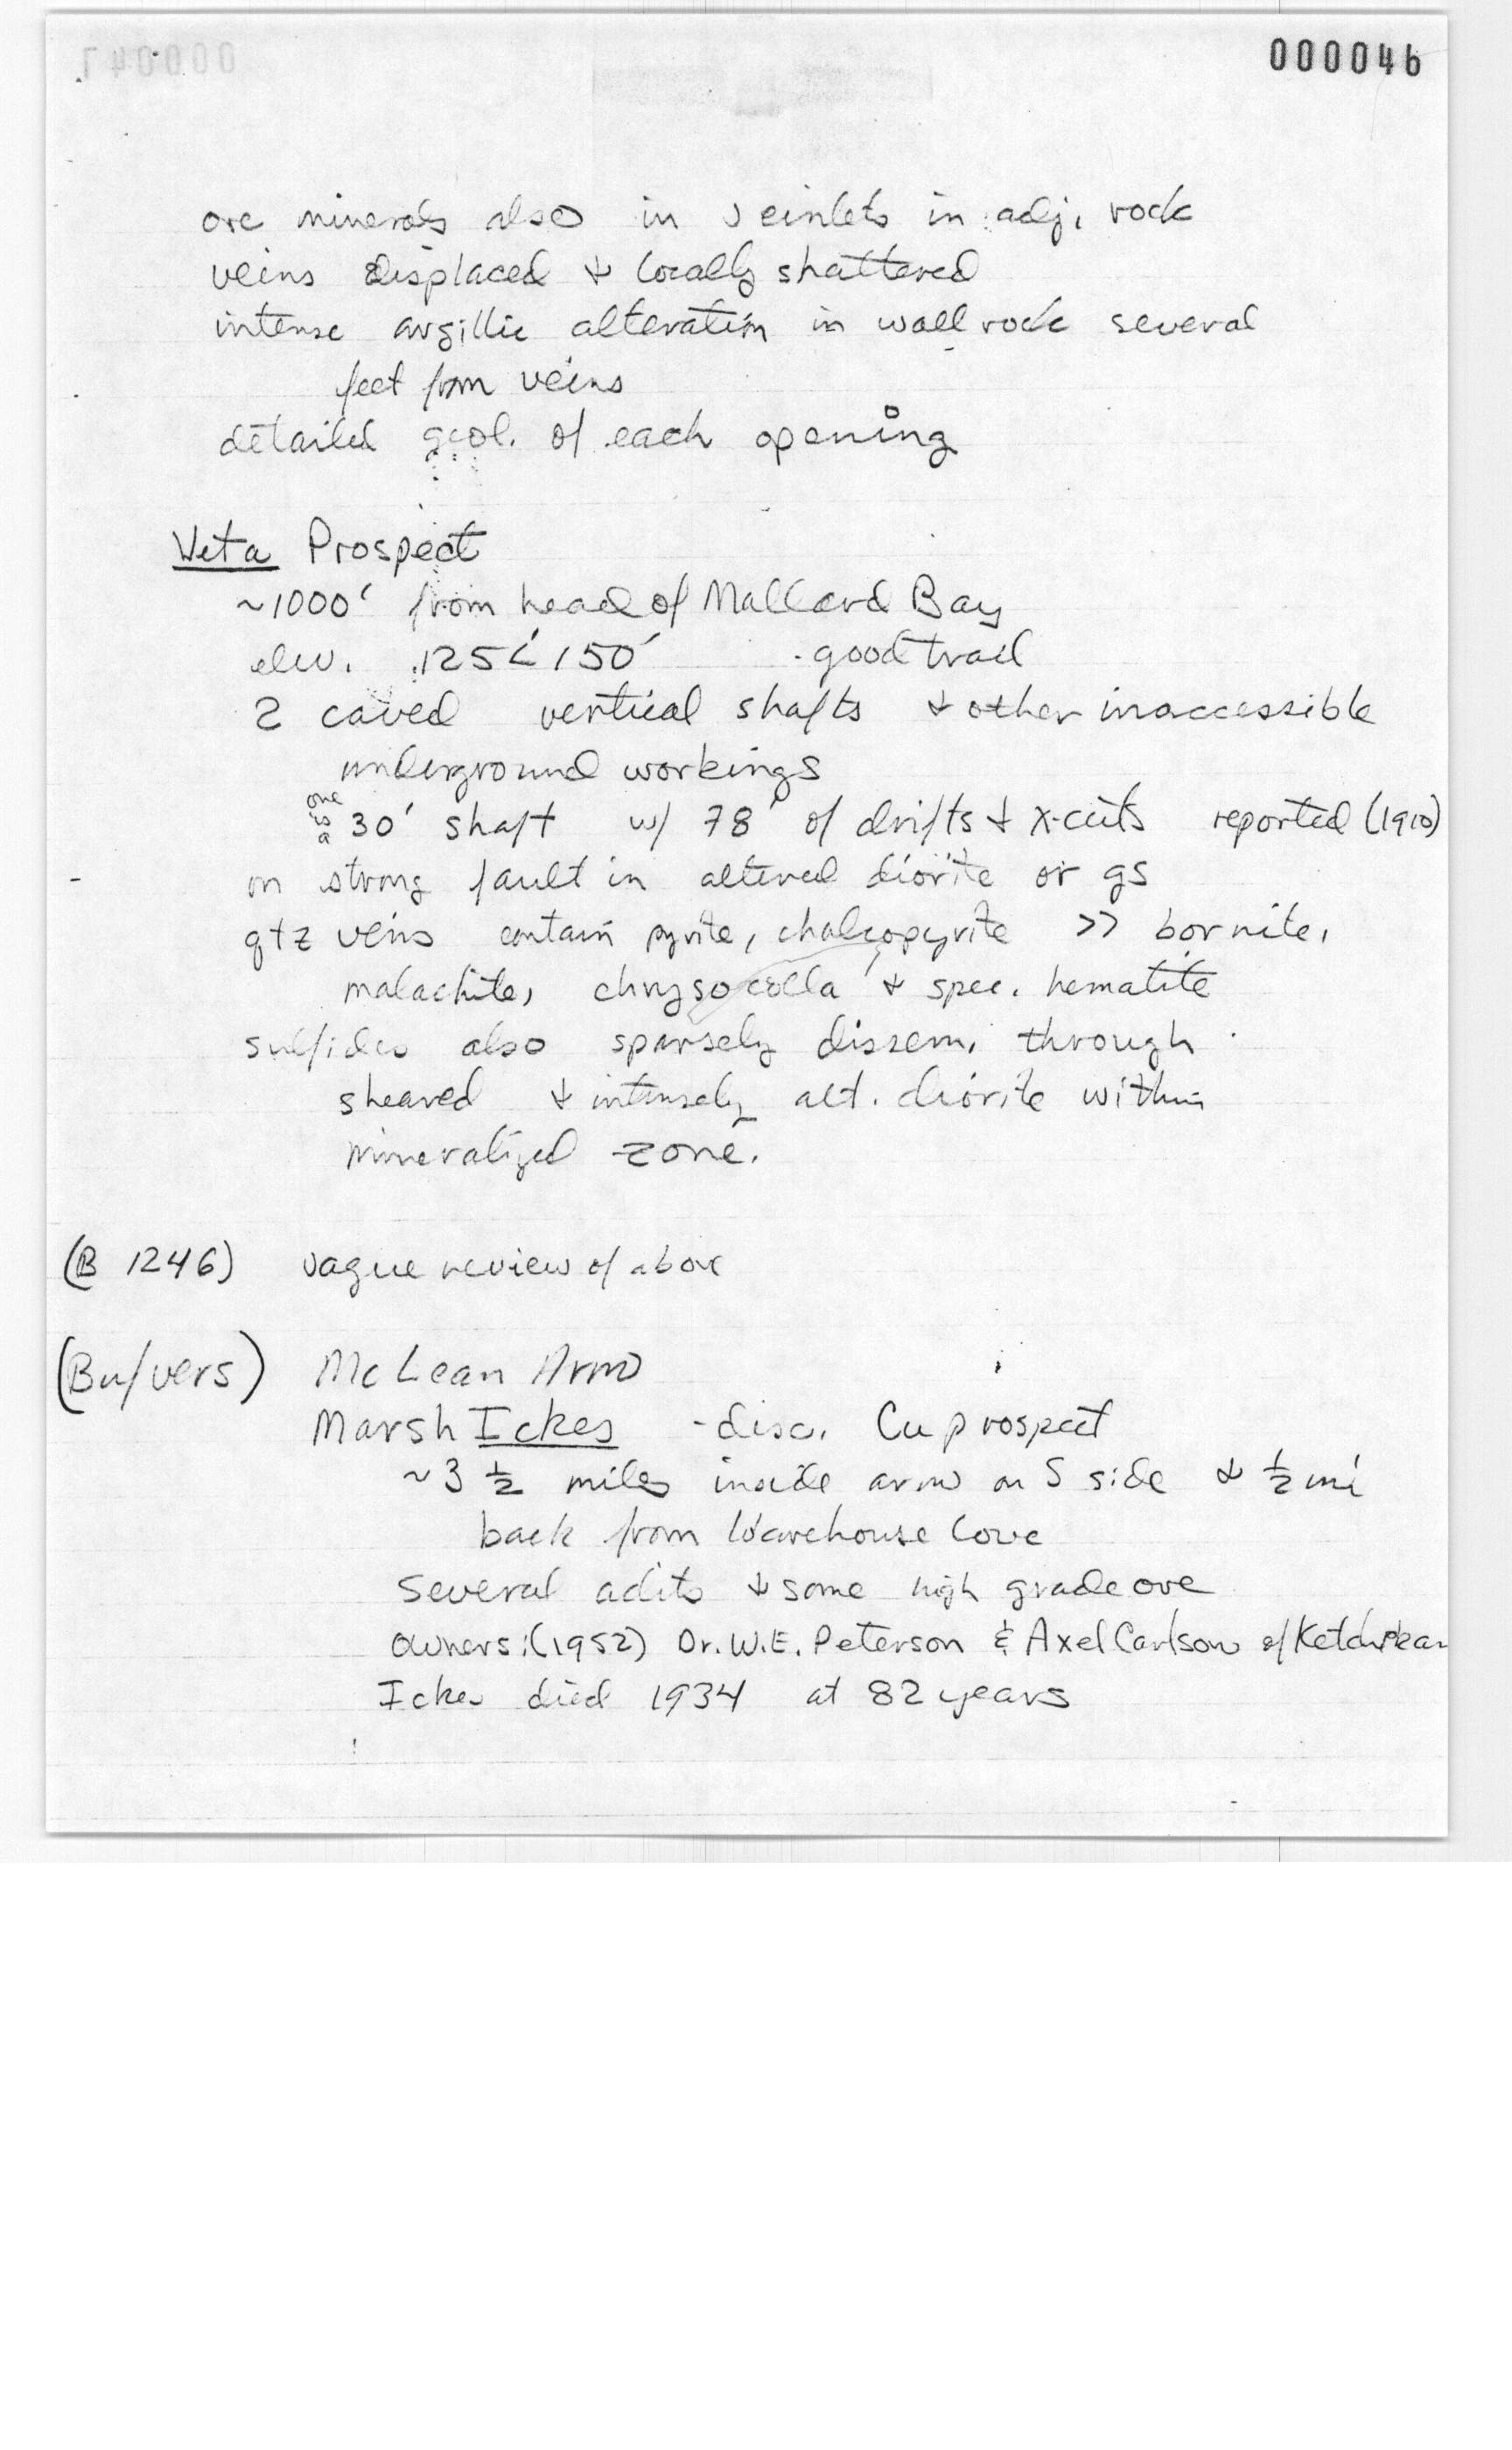 000046
ore minerals also in veinlets in adj. rock
veins displaced & locally shattered
intense argillic alteration in wall rock several
feet from veins
detailed geol. of each opening
Veta Prospect
~1000' from head of Mallard Bay
elev. 125< 150' - good trail
2 caved vertical shafts & other inaccessible
underground workings
one is a 30' shaft w/ 78' of drifts & x-cuts reported (1910)
on strong fault in altered diorite or gs
qtz veins contain pyrite, chalcopyrite >> bornite,
malachite, chrysocolla & spec. hematite
sulfides also sparsely dissem. through
sheared & intensely alt. diorite within
mineralized zone.
(B 1246) vague review of above
(Bufvers) McLean Arm
Marsh Ickes - disc. Cu prospect
~3 ½ miles inside arm on S side & ½ mi
back from Warehouse Cove
Several adits & some high grade ore
owners: (1952) Dr. W.E. Peterson & Axel Carlson of Ketchikan
Ickes died 1934 at 82 years